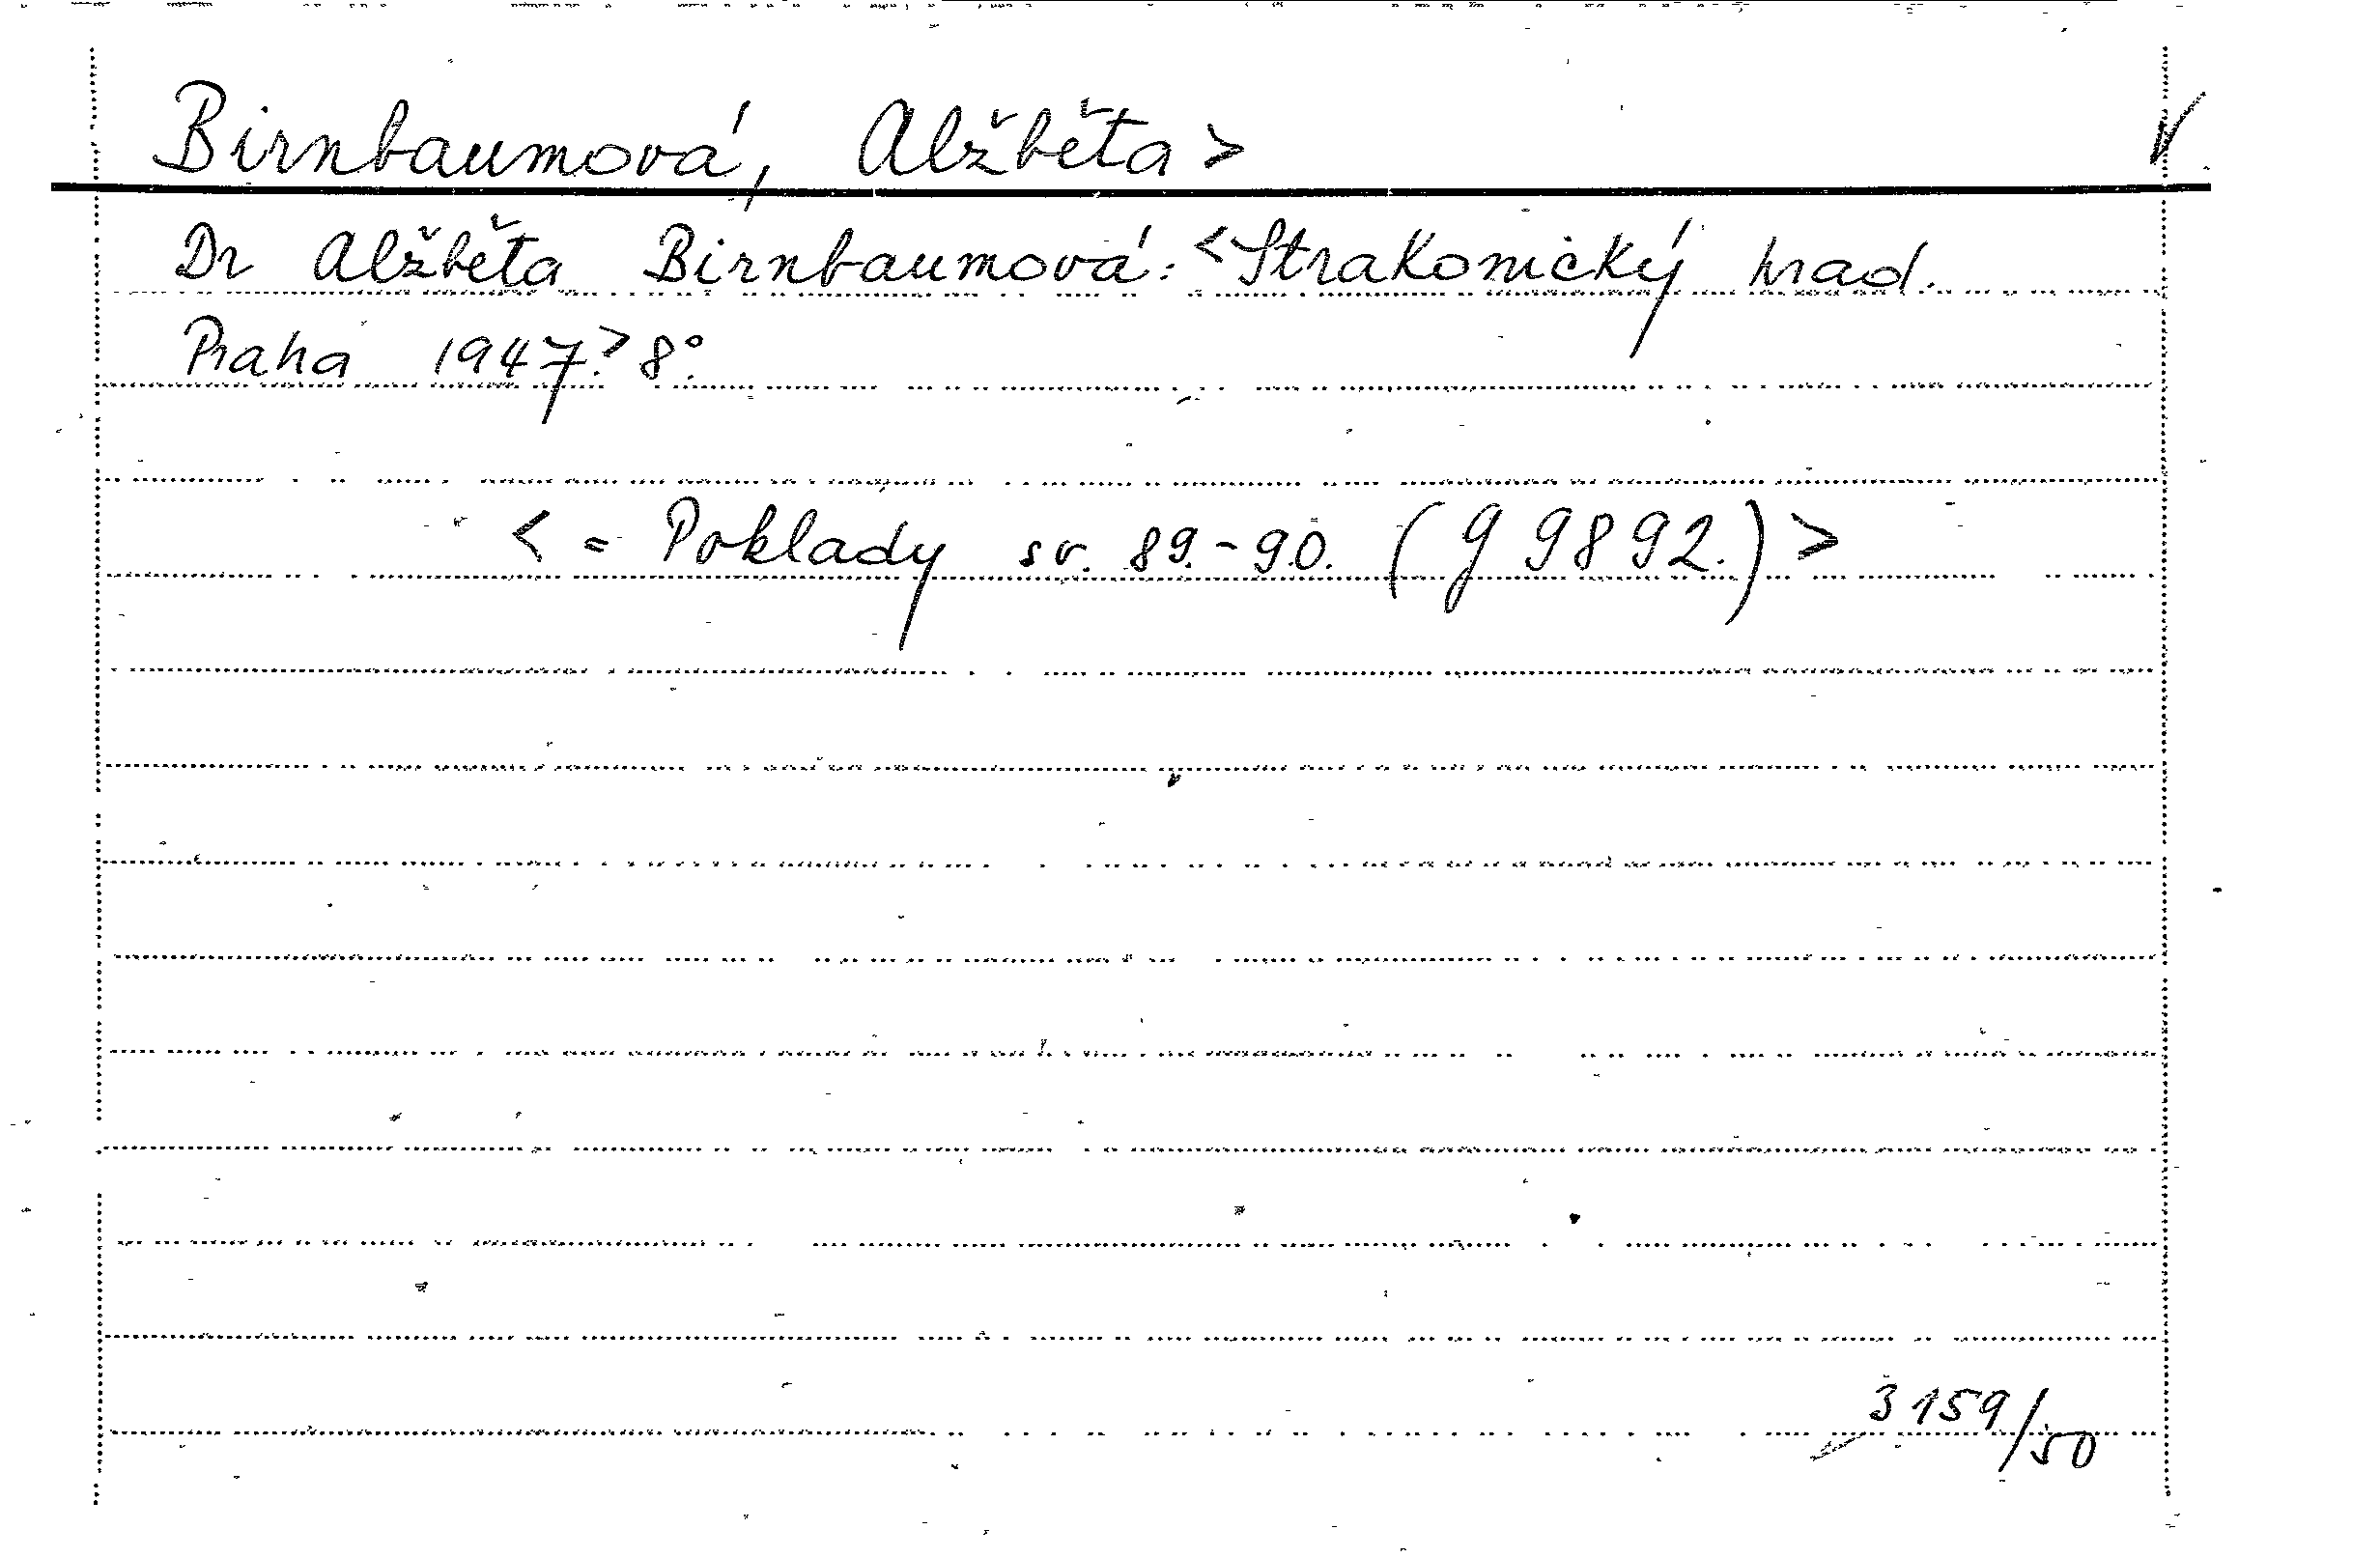 Birnbaumová, Alžběta> V
Dr Alžběta Birnbaumová: <Strakonický hrad.
Praha 1947.> 8°.
< = Poklady sv. 89.-90. (g 9892.) >
3159/50